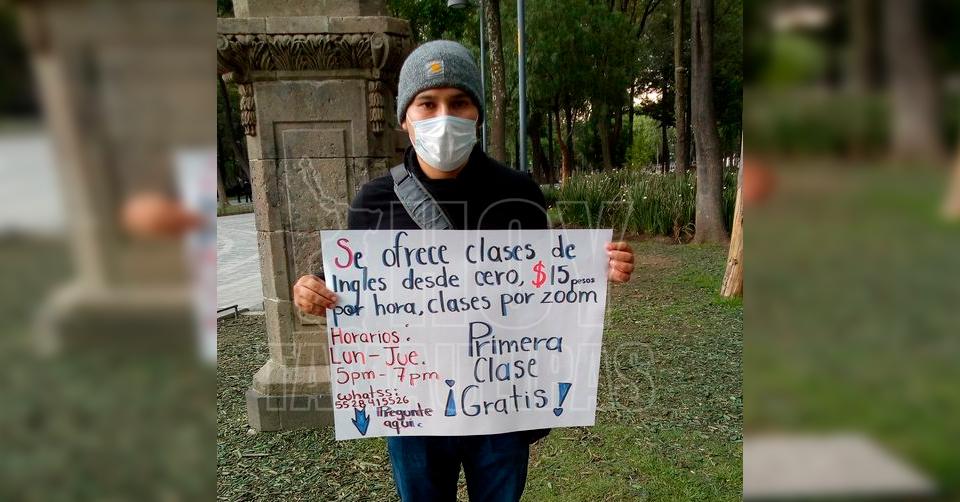 Se ofrece clases de
Ingles desde cero, $15 pesos
por hora, clases por zoom
Horarios:
Lun - Jue.
5pm - 7pm
whatss:
5528415526
Pregunte
aquí.
Primera
Clase
¡Gratis!
HOY
TAMAULIPAS